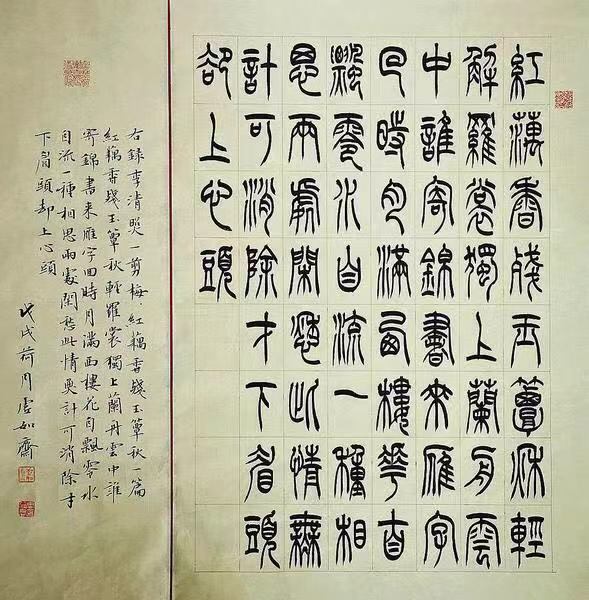 紅藕香殘玉簟秋輕
解羅裳獨上蘭舟雲
中誰寄錦書來雁字
回時月滿西樓華自
飄零水自流一種相
思兩處閒愁此情無
計可消除才下眉頭
卻上心頭
右錄李清照一剪梅紅藕香殘玉簟秋一篇
紅藕香殘玉簟秋輕羅裳獨上蘭舟雲中誰
寄錦書來雁字回時月滿西樓花自飄零水
自流一種相思兩處閒愁此情無計可消除才
下眉頭却上心頭
戊戌荷月虛如齋